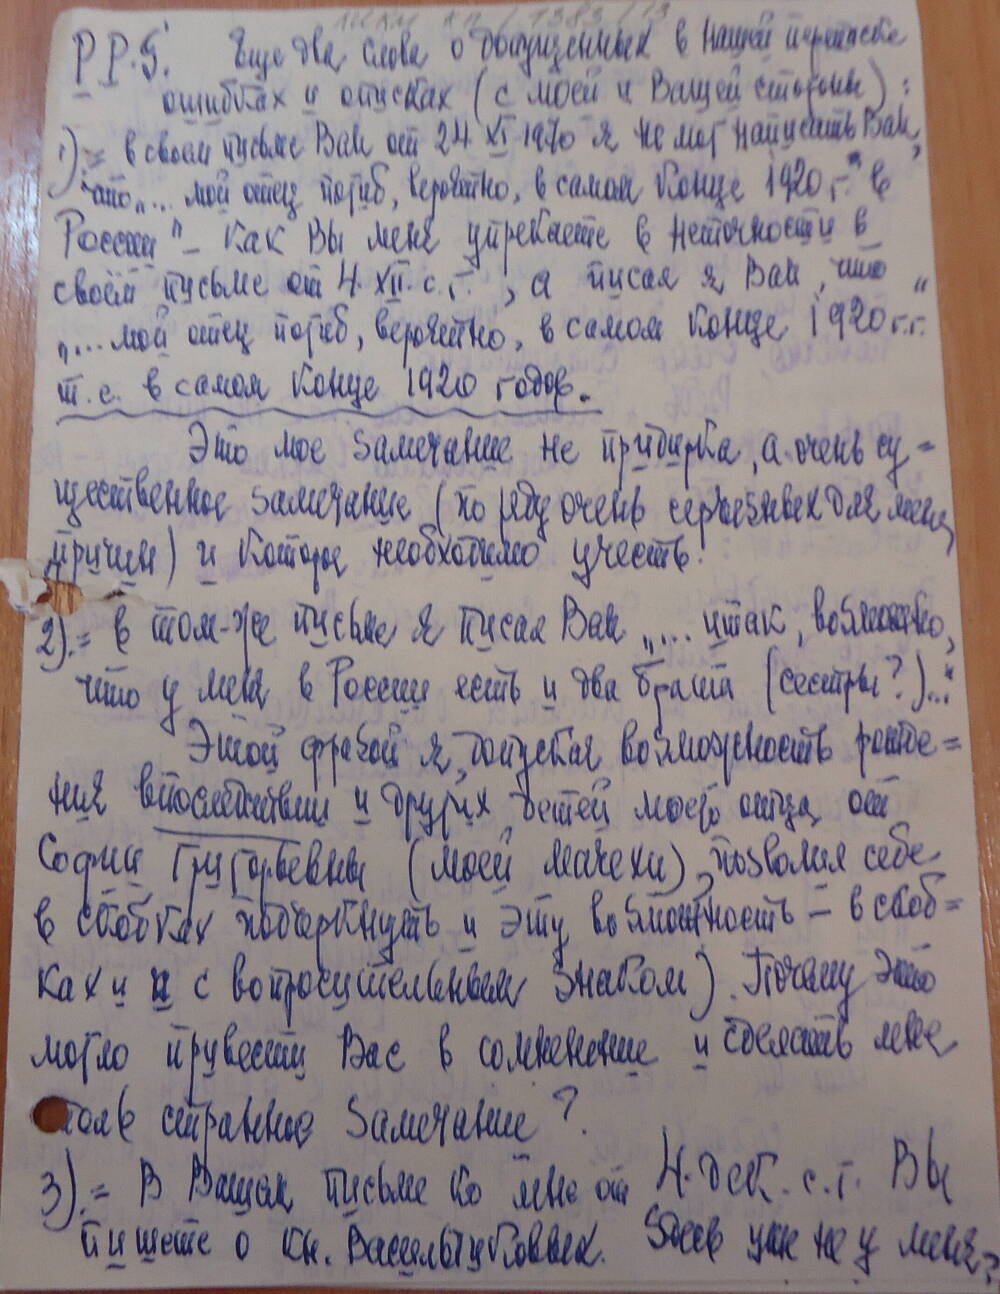 Р Р.S. Еще два слова о допущенных в нашей переписке
ошибках и описках (с моей и Вашей стороны):
1).= в своем письме Вам от 24 XI 1970 я не мог написать Вам,
что „... мой отец погиб, вероятно, в самом конце 1920 г. в
России" – как Вы меня упрекаете в неточности в
своём письме от 4. XII. с. г., а писал я Вам, что
„... мой отец погиб, вероятно, в самом конце 1920 г.г."
т. е. в самом конце 1920 годов.
Это мое замечание не придирка, а очень су=
щественное замечание (по ряду очень серьезных для меня
причин) и которое необходимо учесть.
2).= в том-же письме я писал Вам „... итак, возможно,
что у меня в России есть и два брата (сестры?)..."
Этой фразой я, допуская возможность рожде=
ния впоследствии и других детей моего отца от
Софии Григорьевны (моей мачехи), позволил себе
в скобках подчеркнуть и эту возможность – в скоб=
ках и с вопросительным знаком). Почему это
могло привести Вас в сомненение и сделать мне
столь странное замечание?
3).= В Вашем письме ко мне от 4. дек. с. г. Вы
пишете о кн. Васильчиковых. Здесь уж не у меня,